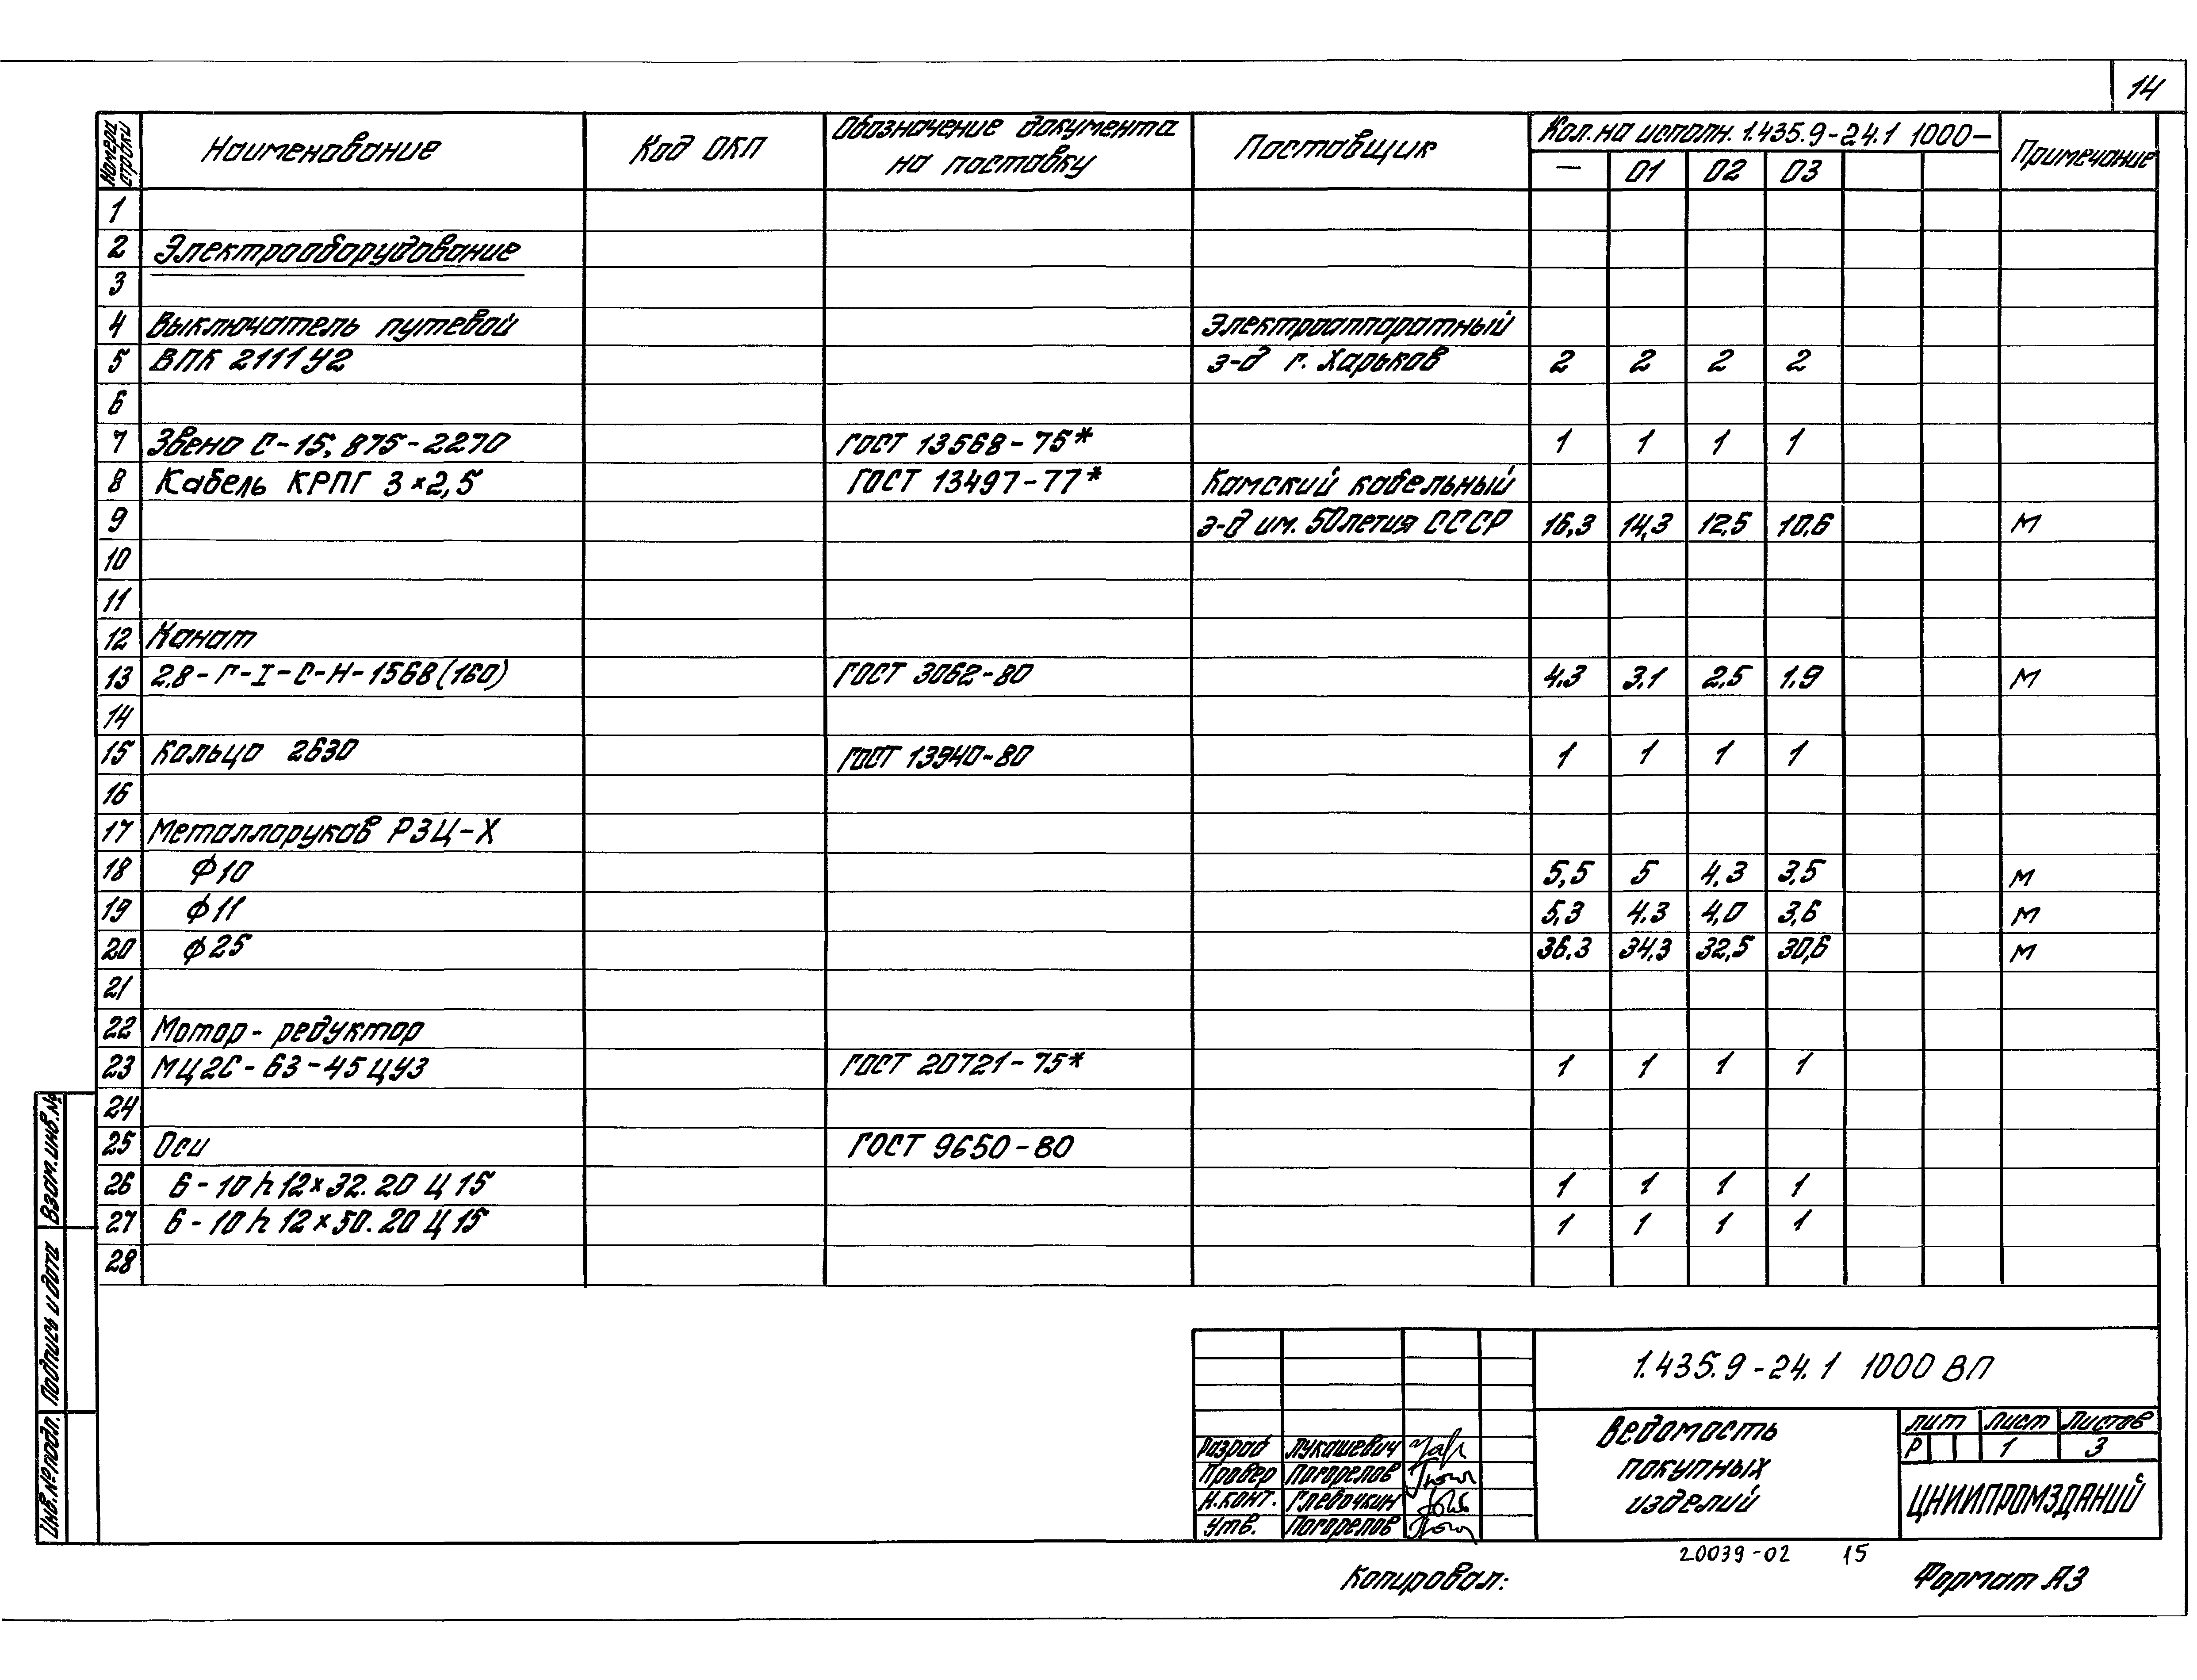 14
Номер строки
Наименование
Код ОКП
Обозначение документа
на поставку
Поставщик
Кол. на исполн. 1.435.9-24.1 1000-
Примечание
— 01 02 03
1
2 Электрооборудование
3
4 Выключатель путевой Электроаппаратный
5 ВПК 2111У2 з-д г. Харьков 2 2 2 2
6
7 Звено С-15,875-2270 ГОСТ 13568-75* 1 1 1 1
8 Кабель КРПГ 3×2,5 ГОСТ 13497-77* Камский кабельный
9 з-д им. 50летия СССР 16,3 14,3 12,5 10,6 м
10
11
12 Канат
13 2.8-Г-I-С-Н-1568(160) ГОСТ 3062-80 4.3 3.1 2,5 1.9 м
14
15 Кольцо 2630 ГОСТ 13940-80 1 1 1 1
16
17 Металлорукав РЗЦ-Х
18 Ф10 5,5 5 4.3 3,5 м
19 Ф11 5,3 4.3 4,0 3,6 м
20 Ф25 36.3 34,3 32,5 30,6 м
21
22 Мотор-редуктор
23 МЦ2С-63-45ЦУ3 ГОСТ 20721-75* 1 1 1 1
24
25 Оси ГОСТ 9650-80
26 6-10h12×32.20Ц15 1 1 1 1
27 6-10h12×50.20Ц15 1 1 1 1
28
Взам.инв.№
Подпись и дата
Инв.№подл.
1.435.9-24.1 1000 ВП
Разраб Лукашевич
Провер Погорелов
Н.конт. Глевочкин
Утв. Погорелов
Ведомость
покупных
изделий
лит лист Листов
Р 1 3
ЦНИИПРОМЗДАНИЙ
20039-02 15
Копировал:
Формат А3